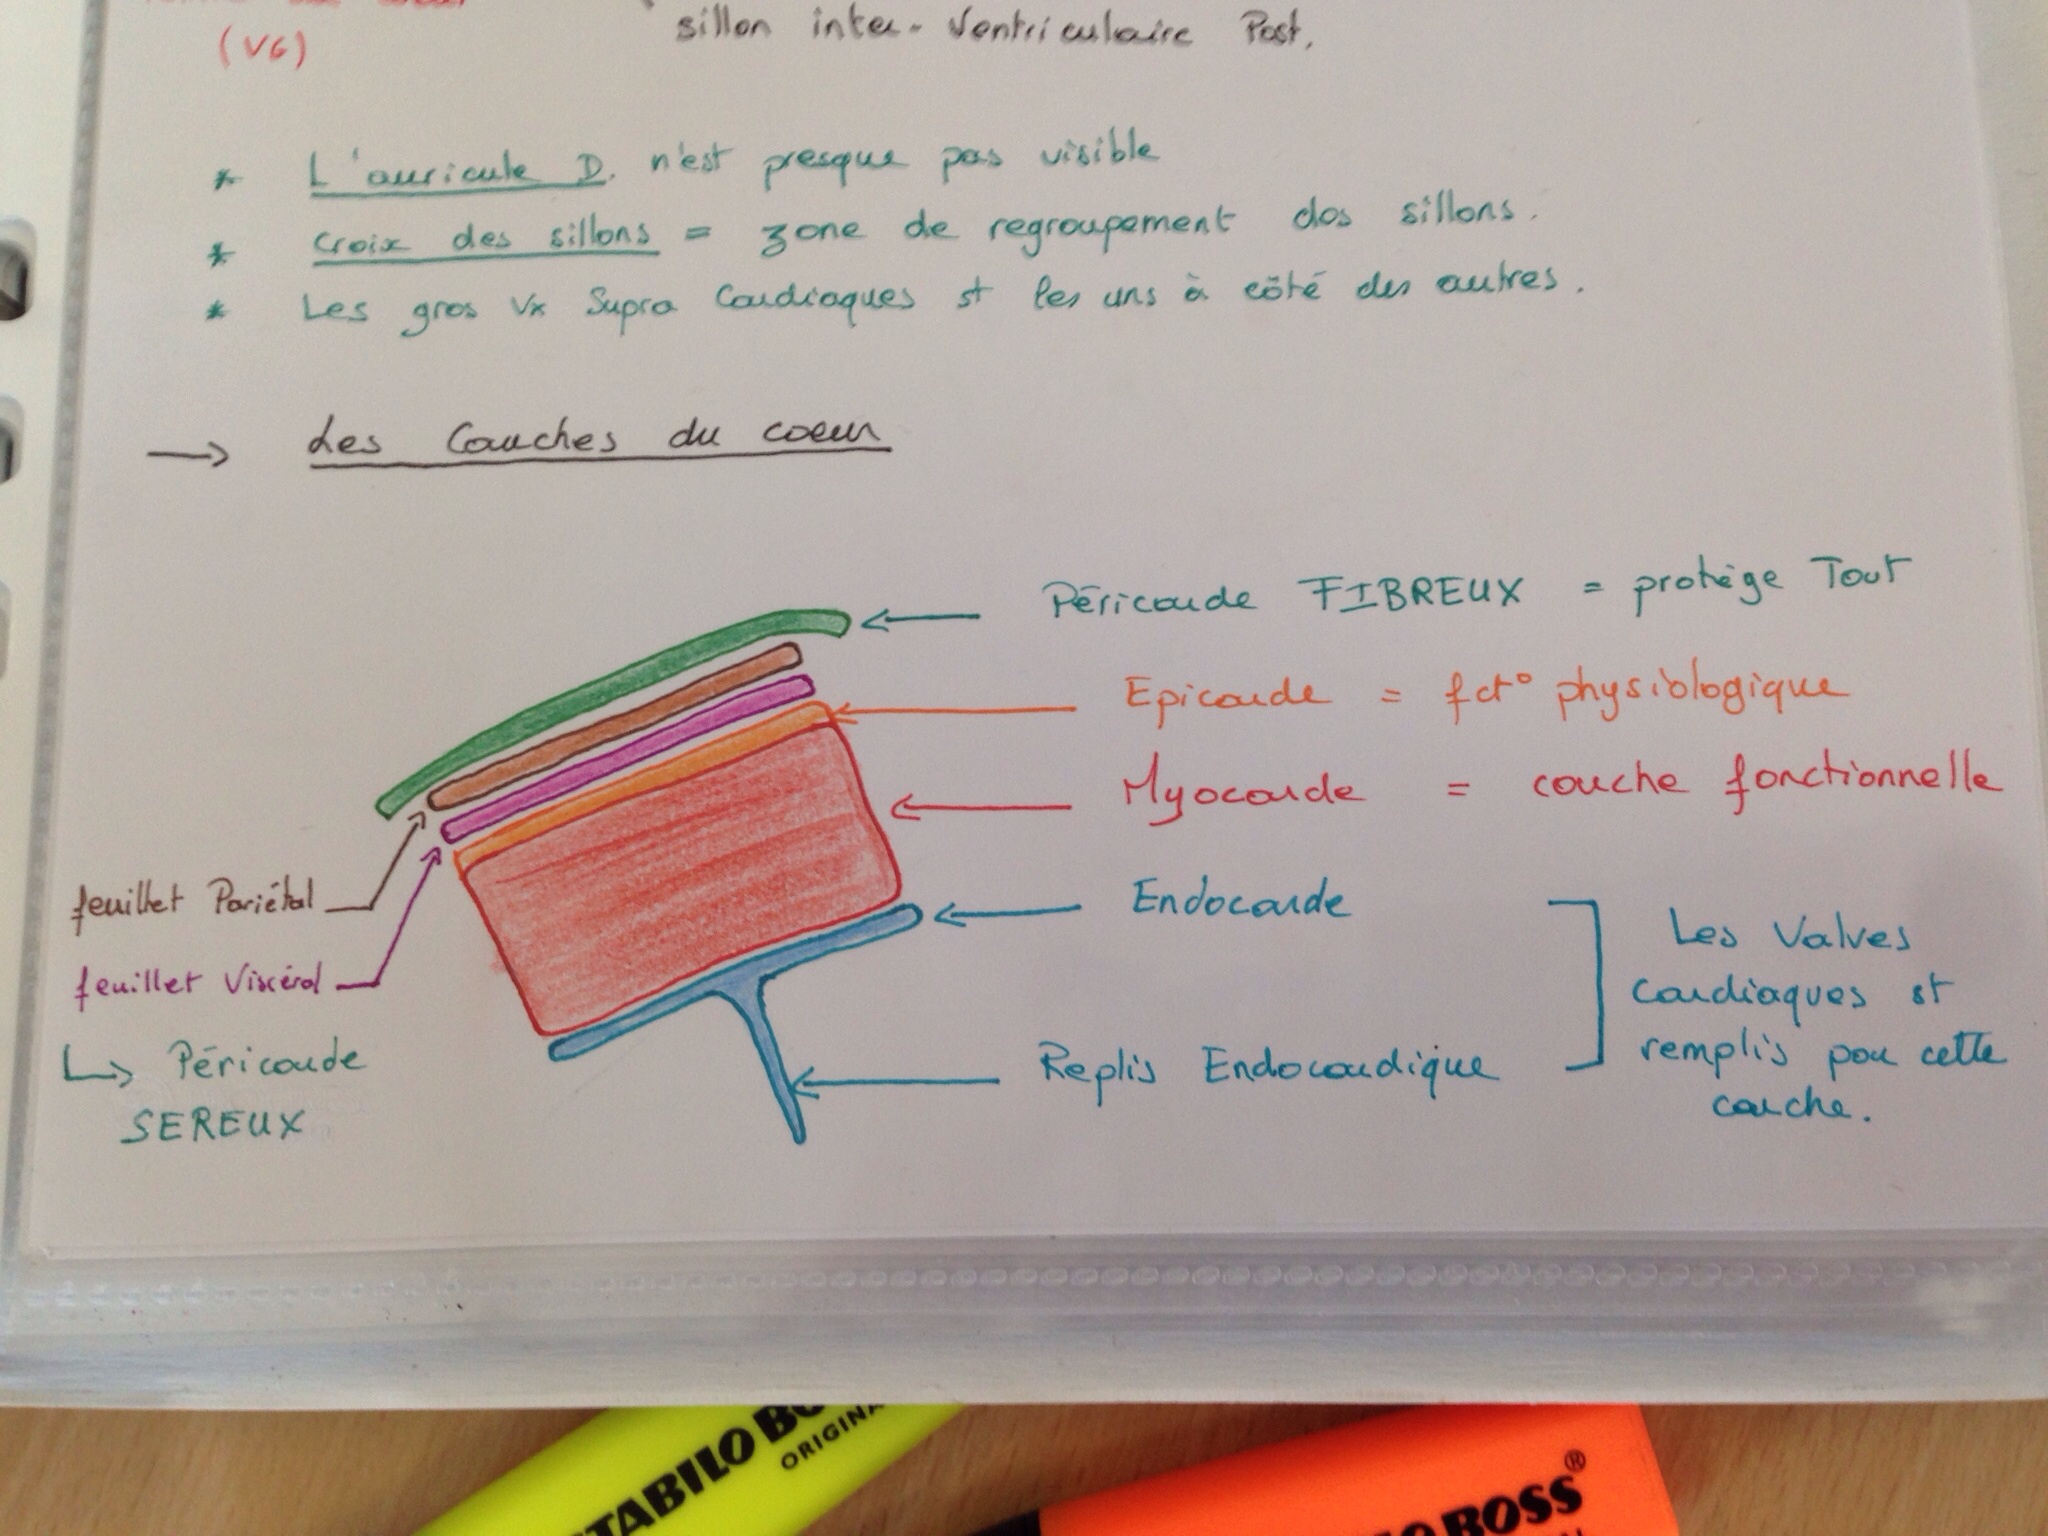 (VG)
sillon inter-Ventriculaire Post.
* L'auricule D. n'est presque pas visible
* Croix des sillons = zone de regroupement des sillons.
* Les gros Vx Supra Cardiaques st les uns à côté des autres.
→ Les Couches du coeur
Péricarde FIBREUX = protège Tout
Epicarde = fct° physiologique
Myocarde = couche fonctionnelle
feuillet Pariétal
feuillet Viscéral
↳ Péricarde
SEREUX
Endocarde
Replis Endocardique
Les Valves
Cardiaques st
remplis par cette
couche.
STABILO BO
ORIGINA
O BOSS®